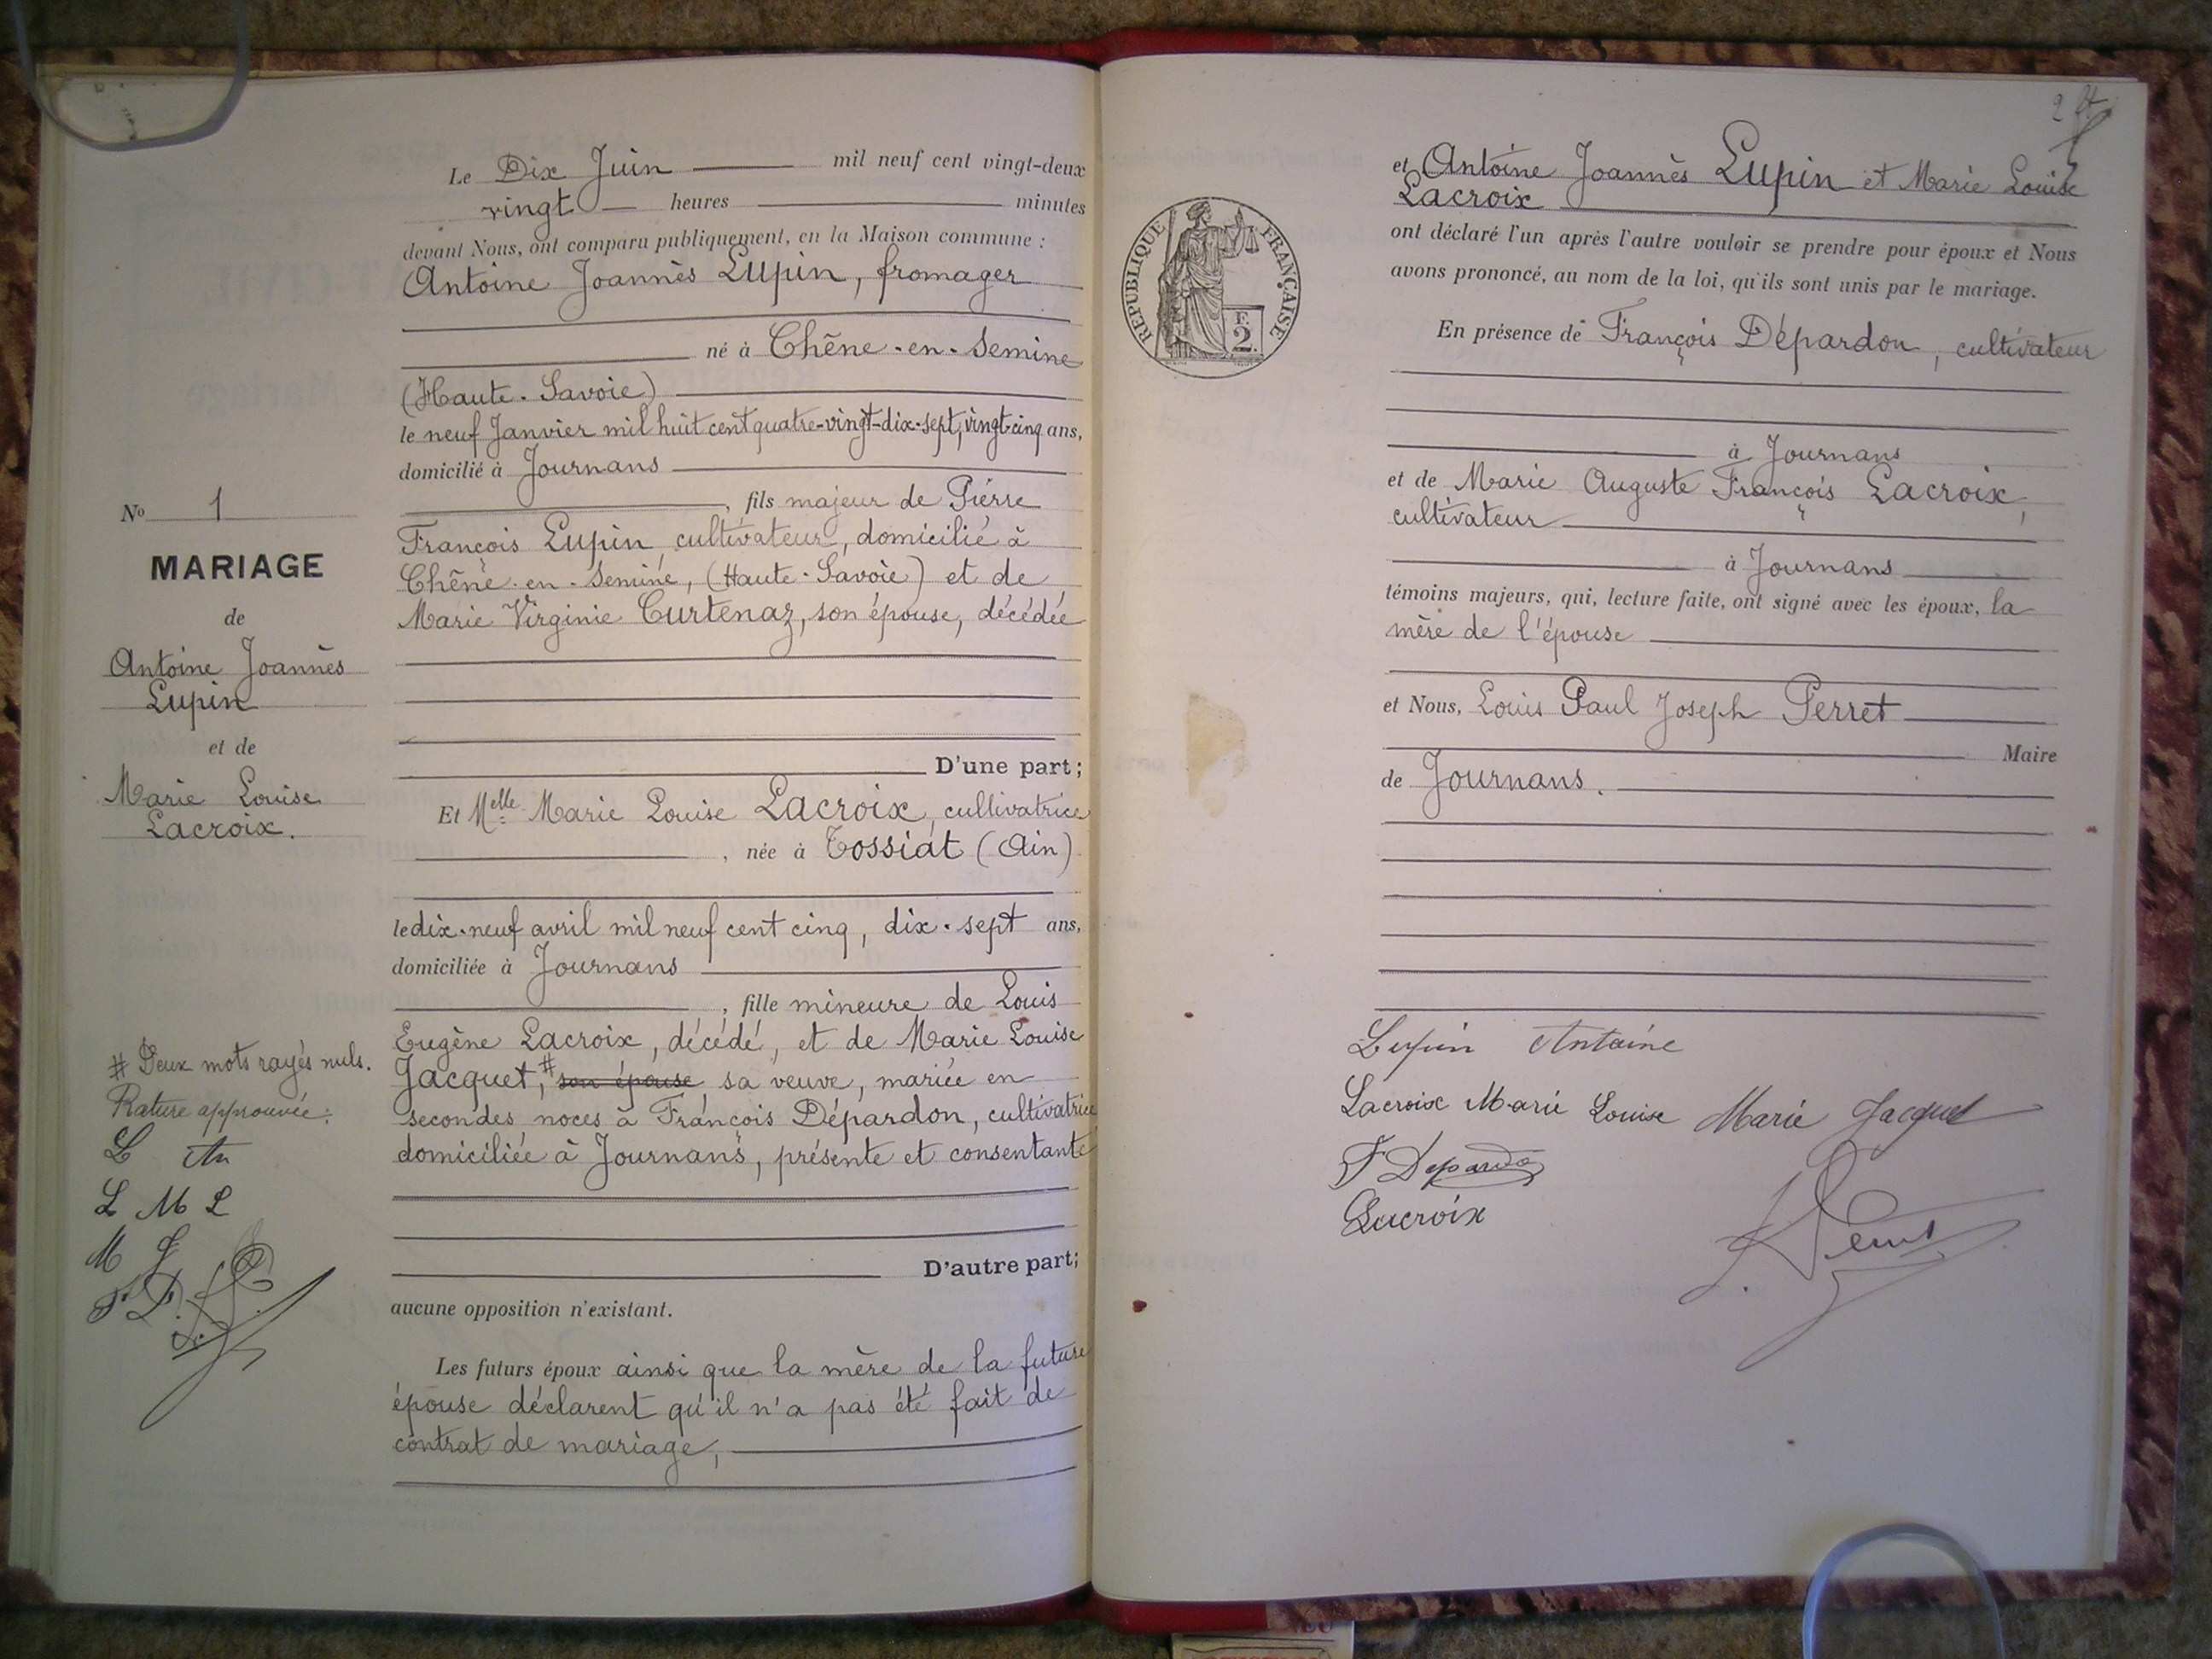 N° 1
MARIAGE
de
Antoine Joannès
Lupin
et de
Marie Louise
Lacroix.
# Deux mots rayés nuls.
Rature approuvée:
L An
L M L
M J
F D.
Le Dix Juin mil neuf cent vingt-deux
vingt heures minutes
devant Nous, ont comparu publiquement, en la Maison commune :
Antoine Joannès Lupin, fromager
né à Chêne-en-Semine
(Haute-Savoie)
le neuf Janvier mil huit cent quatre-vingt-dix-sept, vingt-cinq ans,
domicilié à Journans
, fils majeur de Pierre
François Lupin, cultivateur, domicilié à
Chêne-en-Semine, (Haute-Savoie) et de
Marie Virginie Curtenaz, son épouse, décédée
D'une part;
Et Melle Marie Louise Lacroix, cultivatrice
, née à Tossiat (Ain)
le dix-neuf avril mil neuf cent cinq, dix-sept ans,
domiciliée à Journans
, fille mineure de Louis
Eugène Lacroix, décédé, et de Marie Louise
Jacquet, # son épouse sa veuve, mariée en
secondes noces à François Dépardon, cultivatrice
domiciliée à Journans, présente et consentante
D'autre part;
aucune opposition n'existant.
Les futurs époux ainsi que la mère de la future
épouse déclarent qu'il n'a pas été fait de
contrat de mariage,
2
RÉPUBLIQUE FRANÇAISE
F.
2.
et Antoine Joannès Lupin et Marie Louise
Lacroix
ont déclaré l'un après l'autre vouloir se prendre pour époux et Nous
avons prononcé, au nom de la loi, qu'ils sont unis par le mariage.
En présence de François Dépardon, cultivateur
à Journans
et de Marie Auguste François Lacroix,
cultivateur
à Journans
témoins majeurs, qui, lecture faite, ont signé avec les époux, la
mère de l'épouse
et Nous, Louis Paul Joseph Perret
Maire
de Journans.
Lupin Antoine
Lacroix Marie Louise Marie Jacquet
F Depardon
Lacroix
Perret